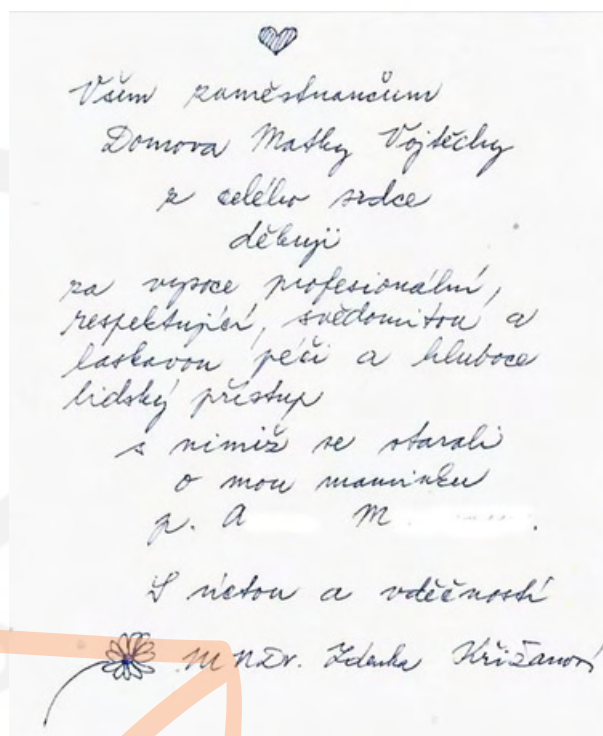 Všem zaměstnancům
Domova Matky Vojtěchy
z celého srdce
děkuji
za vysoce profesionální,
respektující, svědomitou a
laskavou péči a hluboce
lidský přístup
s nimiž se starali
o mou maminku
p. A M .
S úctou a vděčností
MUDr. Zdenka Křižanová